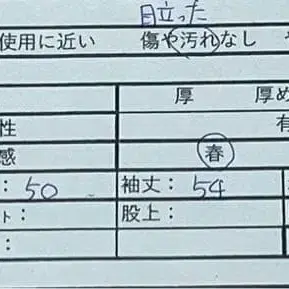 目立った
使用に近い 傷や汚れなし
厚 厚め
性 有
感 春
：50 袖丈：54
ト： 股上：
：